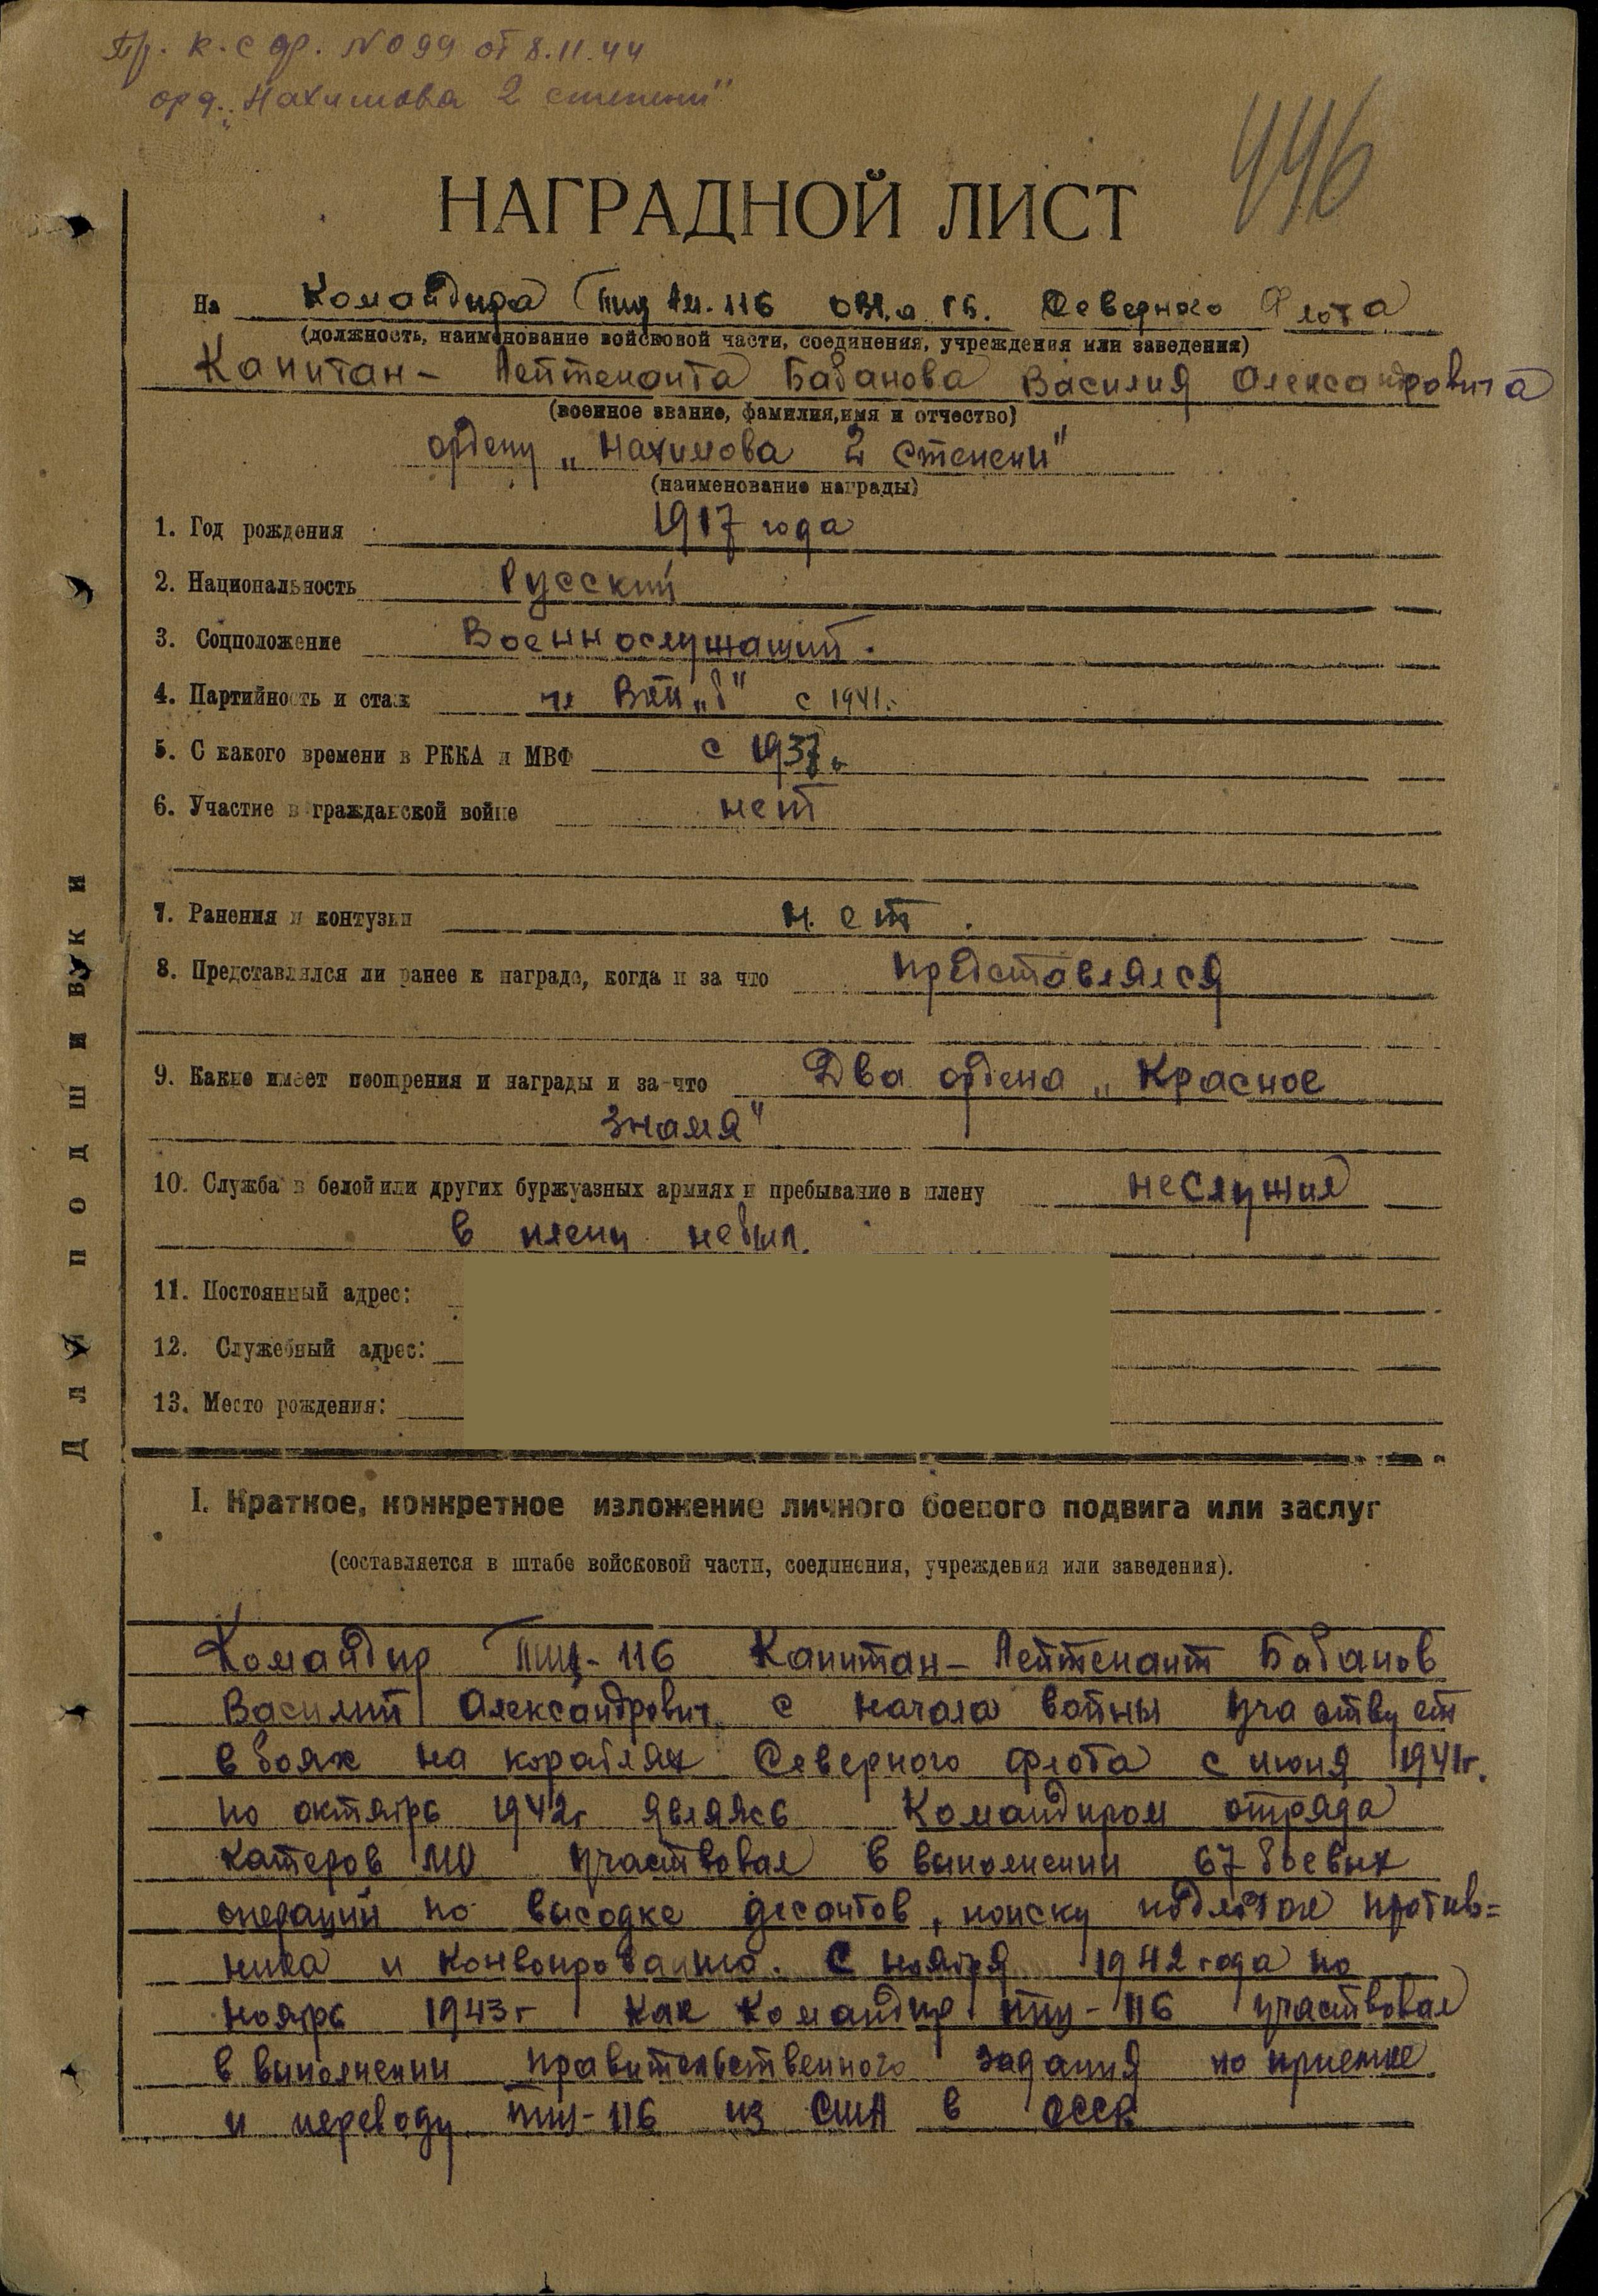 Пр. К.С.Ф. № 099 от 8.11.44
орд. „Нахимова 2 степени"
446
НАГРАДНОЙ ЛИСТ
На Командира Тщ АМ-116 ОВР,а ГБ. Северного Флота
(должность, наименование войсковой части, соединения, учреждения или заведения)
Капитан-Лейтенанта Бабанова Василия Александровича
(военное звание, фамилия, имя и отчество)
ордену „Нахимова 2 степени"
(наименование награды)
1. Год рождения 1917 года
2. Национальность Русский
3. Соцположение Военнослужащий.
4. Партийность и стаж чл ВКП„б" с 1941г.
5. С какого времени в РККА и МВФ с 1937г.
6. Участие в гражданской войне нет
7. Ранения и контузии нет.
8. Представлялся ли ранее к награде, когда и за что представлялся
9. Какие имеет поощрения и награды и за что Два ордена „Красное
Знамя"
10. Служба в белой или других буржуазных армиях и пребывание в плену неслужил
в плену небыл.
11. Постоянный адрес:
12. Служебный адрес:
13. Место рождения:
Для подшивки
I. Краткое, конкретное изложение личного боевого подвига или заслуг
(составляется в штабе войсковой части, соединения, учреждения или заведения).
Командир ТЩ-116 Капитан-Лейтенант Бабанов
Василий Александрович с начала войны участвует
в боях на кораблях Северного флота с июня 1941г.
по октябрь 1942г являясь Командиром отряда
катеров МО участвовал в выполнении 67 боевых
операций по высадке десантов, поиску подлодок против=
ника и конвоированию. С ноября 1942 года по
ноябрь 1943г как Командир ТЩ-116 участвовал
в выполнении правительственного задания по приемке
и переводу ТЩ-116 из США в СССР